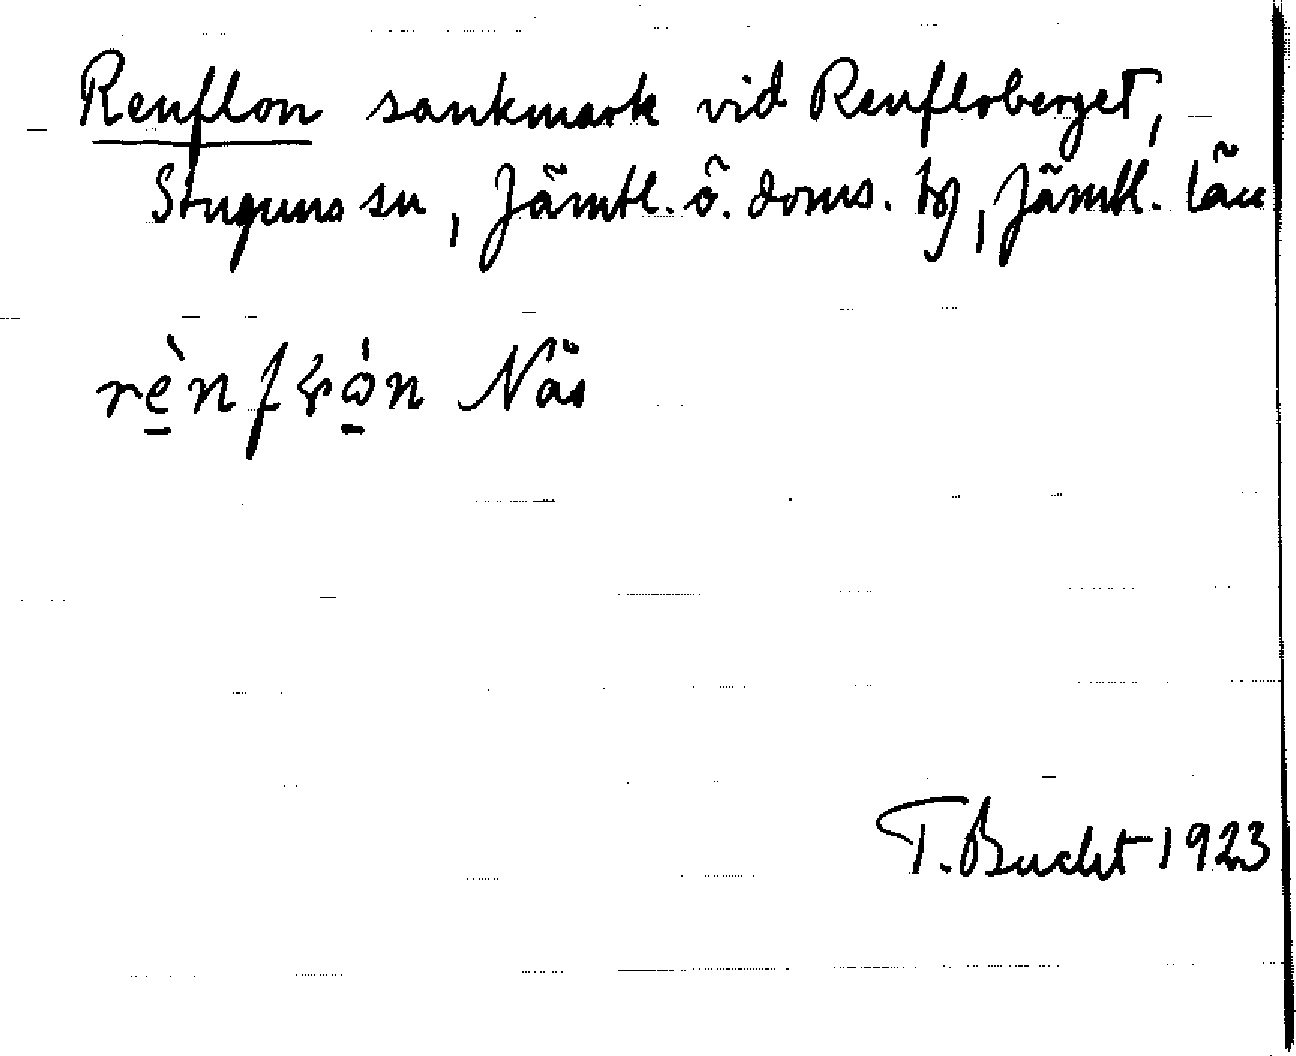 Renflon sankmark vid Renfloberget,
Stuguns sn, Jämtl. ö. doms. hd, Jämtl. län
Näs
T. Bucht 1923